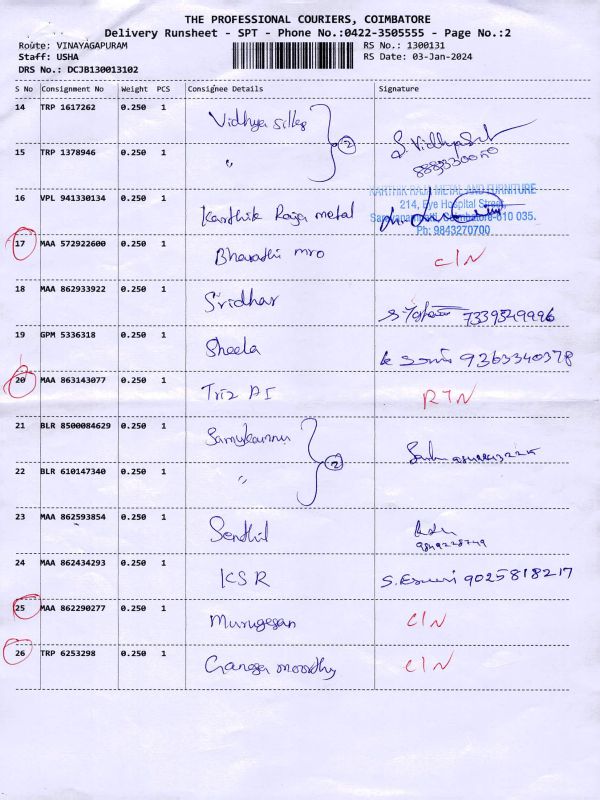 THE PROFESSIONAL COURIERS, COIMBATORE
Delivery Runsheet - SPT - Phone No.:0422-3505555 - Page No.:2
Route: VINAYAGAPURAM RS No.: 1300131
Staff: USHA RS Date: 03-Jan-2024
DRS No.: DCJB130013102
S No Consignment No Weight PCS Consignee Details Signature
14 TRP 1617262 0.250 1 Vidhya silks
S. Vidhya
15 TRP 1378946 0.250 1 " 2
KARTHIK RAJA METAL AND FURNITURE
16 VPL 941330134 0.250 1 Karthik Raja metal
214, Eye Hospital Street,
Coimbatore-610 035.
Ph: 9843270700
17 MAA 572922600 0.250 1 Bharathi mro C/N
18 MAA 862933922 0.250 1 Sridhar 7339549996
19 GPM 5336318 0.250 1 Sheela 9363340378
20 MAA 863143077 0.250 1 Triz RTN
21 BLR 8500084629 0.250 1
22 BLR 610147340 0.250 1 " 2
23 MAA 862593854 0.250 1 Sendhil
24 MAA 862434293 0.250 1 KSR S. Eswari 9025818217
25 MAA 862290277 0.250 1 Murugesan C/N
26 TRP 6253298 0.250 1 Ganga moorthy C/N